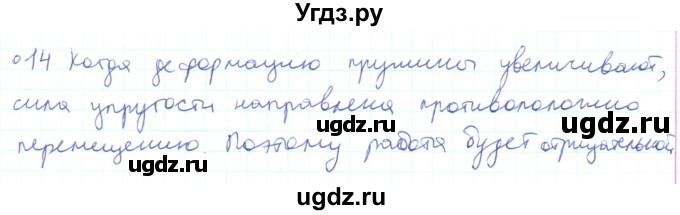 Угдз.ру
о14 Когда деформацию пружины увеличивают,
сила упругости направлена противоположно
угdz.ру
перемещению. Поэтому работа будет отрицательной
угdz.ру
угdz.ру
угdz.ру